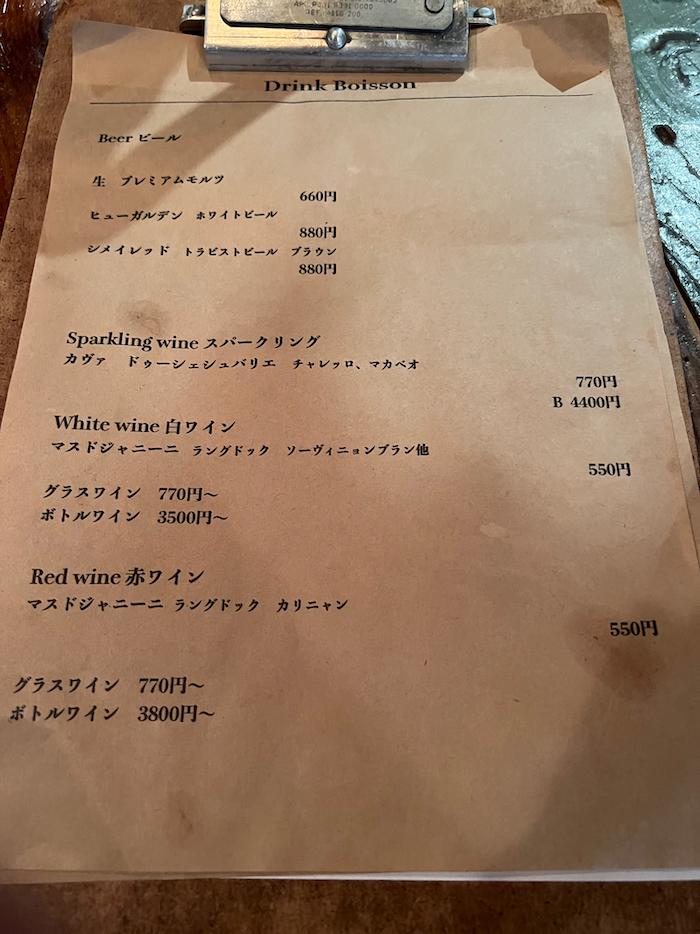 Drink Boisson
Beer ビール
生 プレミアムモルツ
660円
ヒューガルデン ホワイトビール
880円
シメイレッド トラピストビール ブラウン
880円
Sparkling wine スパークリング
カヴァ ドゥーシェシュバリエ チャレッロ、マカベオ
770円
B 4400円
White wine 白ワイン
マスドジャニーニ ラングドック ソーヴィニョンブラン他
550円
グラスワイン 770円〜
ボトルワイン 3500円〜
Red wine 赤ワイン
マスドジャニーニ ラングドック カリニャン
550円
グラスワイン 770円〜
ボトルワイン 3800円〜